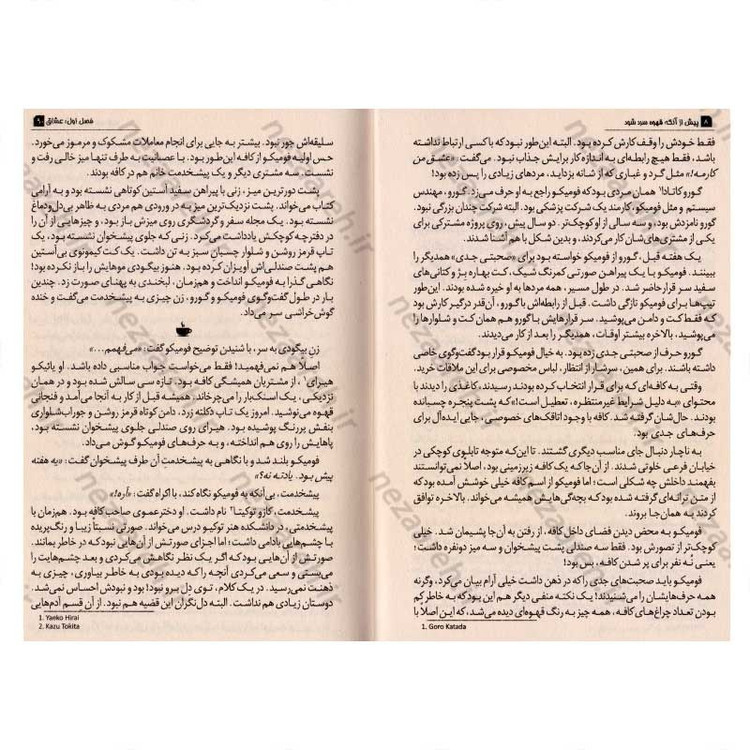 ۸ پیش از آنکه قهوه سرد شود
فقط خودش را وقف کارش کرده بود. البته این‌طور نبود که با کسی ارتباط نداشته
باشد، فقط هیچ رابطه‌ای به اندازه کار برایش جذاب نبود. می‌گفت: «عشق من
کارمه!» مثل گرد و غباری که از شانه بزداید، مردهای زیادی را پس زده بود!
گورو کاتادا۱ همان مردی بود که فومیکو راجع به او حرف می‌زد. گورو، مهندس
سیستم و مثل فومیکو، کارمند یک شرکت پزشکی بود. البته شرکت چندان بزرگی نبود.
گورو نامزدش بود، و سه سالی از او کوچک‌تر. دو سال پیش، روی پروژه مشترکی برای
یکی از مشتری‌های‌شان کار می‌کردند، و بدین شکل با هم آشنا شدند.
یک هفته قبل، گورو از فومیکو خواسته بود برای «صحبتی جدی» همدیگر را
ببینند. فومیکو با یک پیراهن صورتی کمرنگ شیک، کت بهاره بژ و کتانی‌های
سفید سر قرار حاضر شد. در طول مسیر، همه مردها به او خیره شده بودند. این‌طور
تیپ‌ها برای فومیکو تازگی داشت. قبل از رابطه‌اش با گورو، آن‌قدر درگیر کارش بود
که فقط کت و دامن می‌پوشید. سر قرارهایش با گورو هم همان کت و شلوارها را
می‌پوشید، بالاخره بیشتر اوقات، همدیگر را بعد از کار می‌دیدند.
گورو حرف از صحبتی جدی زده بود. به خیال فومیکو قرار بود گفت‌وگوی خاصی
داشته باشند. برای همین، سرشار از انتظار، لباس مخصوصی برای این ملاقات خرید.
وقتی به کافه‌ای که برای قرار انتخاب کرده بودند رسیدند، کاغذی را دیدند با
محتوای «به دلیل شرایط غیرمنتظره، تعطیل است!» که پشت پنجره چسبانده
بودند. حال‌شان گرفته شد. کافه با وجود اتاقک‌های خصوصی، جایی ایده‌آل برای
حرف‌های جدی بود.
به ناچار دنبال جای مناسب دیگری گشتند. تا این‌که متوجه تابلوی کوچکی در
خیابان فرعی خلوتی شدند. از آن‌جا که یک کافه زیرزمینی بود، اصلاً نمی‌توانستند
بفهمند داخلش چه شکلی است؛ اما فومیکو از اسم کافه خیلی خوشش آمده بود که
از متن ترانه‌ای گرفته شده بود که بچگی‌هایش همیشه می‌خواند. بالاخره توافق
کردند به همان‌جا بروند.
فومیکو به محض دیدن فضای داخل کافه، از رفتن به آن‌جا پشیمان شد. خیلی
کوچک‌تر از تصورش بود. فقط سه صندلی پشت پیشخوان و سه میز دونفره داشت؛
یعنی نُه نفر برای پر شدن کافه، بس بود!
فومیکو باید صحبت‌های جدی را که در ذهن داشت خیلی آرام بیان می‌کرد، وگرنه
همه حرف‌هایشان را می‌شنیدند! یک نکته منفی دیگر هم این بود که به خاطر کم
بودن تعداد چراغ‌های کافه، همه چیز به رنگ قهوه‌ای دیده می‌شد، که این اصلاً با
1. Goro Katada
فصل اول: عشاق ۹
سلیقه‌اش جور نبود. بیشتر به جایی برای انجام معاملات مشکوک و مرموز می‌خورد.
حس اولیه فومیکو از کافه این‌طور بود. با عصبانیت به طرف تنها میز خالی رفت و
نشست. سه مشتری دیگر و یک پیشخدمت خانم هم در کافه بودند.
پشت دورترین میز، زنی با پیراهن سفید آستین کوتاهی نشسته بود و به آرامی
کتاب می‌خواند. پشت نزدیک‌ترین میز به در ورودی هم مردی به ظاهر بی‌دل‌ودماغ
نشسته بود. یک مجله سفر و گردشگری روی میزش باز بود، و چیزهایی از آن را
در دفترچه کوچکش یادداشت می‌کرد. زنی که جلوی پیشخوان نشسته بود، یک
تاپ قرمز روشن و شلوار چسبان سبز به تن داشت. یک کت کیمونوی بی‌آستین
هم پشت صندلی‌اش آویزان کرده بود. هنوز بیگودی موهایش را باز نکرده بود!
نگاهی گذرا به فومیکو انداخت و هم‌زمان، لبخندی به پهنای صورت زد. چندین
بار در طول گفت‌وگوی فومیکو و گورو، زن چیزی به پیشخدمت می‌گفت و خنده
گوش‌خراشی سر می‌داد.
زن بیگودی به سر، با شنیدن توضیح فومیکو گفت: «می‌فهمم...»
اصلاً هم نمی‌فهمید! فقط می‌خواست جواب مناسبی داده باشد. او یائیکو
هیرای۱، از مشتریان همیشگی کافه بود. تازه سی سالش شده بود و در همان
نزدیکی، یک اسنک‌بار را می‌چرخاند. همیشه قبل از کار به آنجا می‌آمد و فنجانی
قهوه می‌نوشید. امروز یک تاپ دکلته زرد، دامن کوتاه قرمز روشن و جوراب‌شلواری
بنفش پررنگ پوشیده بود. هیرای روی صندلی جلوی پیشخوان نشسته بود،
پاهایش را روی هم انداخته، و به حرف‌های فومیکو گوش می‌داد.
فومیکو بلند شد و با نگاهی به پیشخدمتِ آن طرف پیشخوان گفت: «یه هفته
پیش بود. یادته نه؟»
پیشخدمت، بی‌آنکه به فومیکو نگاه کند، با اکراه گفت: «آره!»
پیشخدمت، کازو توکیتا۲ نام داشت. او دخترعموی صاحب کافه بود. هم‌زمان با
پیشخدمتی، در دانشکده هنر توکیو درس می‌خواند. صورتی نسبتاً زیبا و رنگ‌پریده
با چشم‌هایی بادامی داشت؛ اما اجزای صورتش از آن‌هایی نبود که در خاطر بمانند.
صورتش از آن‌هایی بود که اگر یک نظر نگاهش می‌کردی و بعد چشم‌هایت را
می‌بستی و سعی می‌کردی آنچه را که دیده بودی به خاطر بیاوری، چیزی به
ذهنت نمی‌رسید. در یک کلام، توی دل برو نبود! بود و نبودش احساس نمی‌شد.
دوستان زیادی هم نداشت. البته دل‌نگران این قضیه هم نبود. از آن قسم آدم‌هایی
1. Yaeko Hirai
2. Kazu Tokita
nezaareh.ir